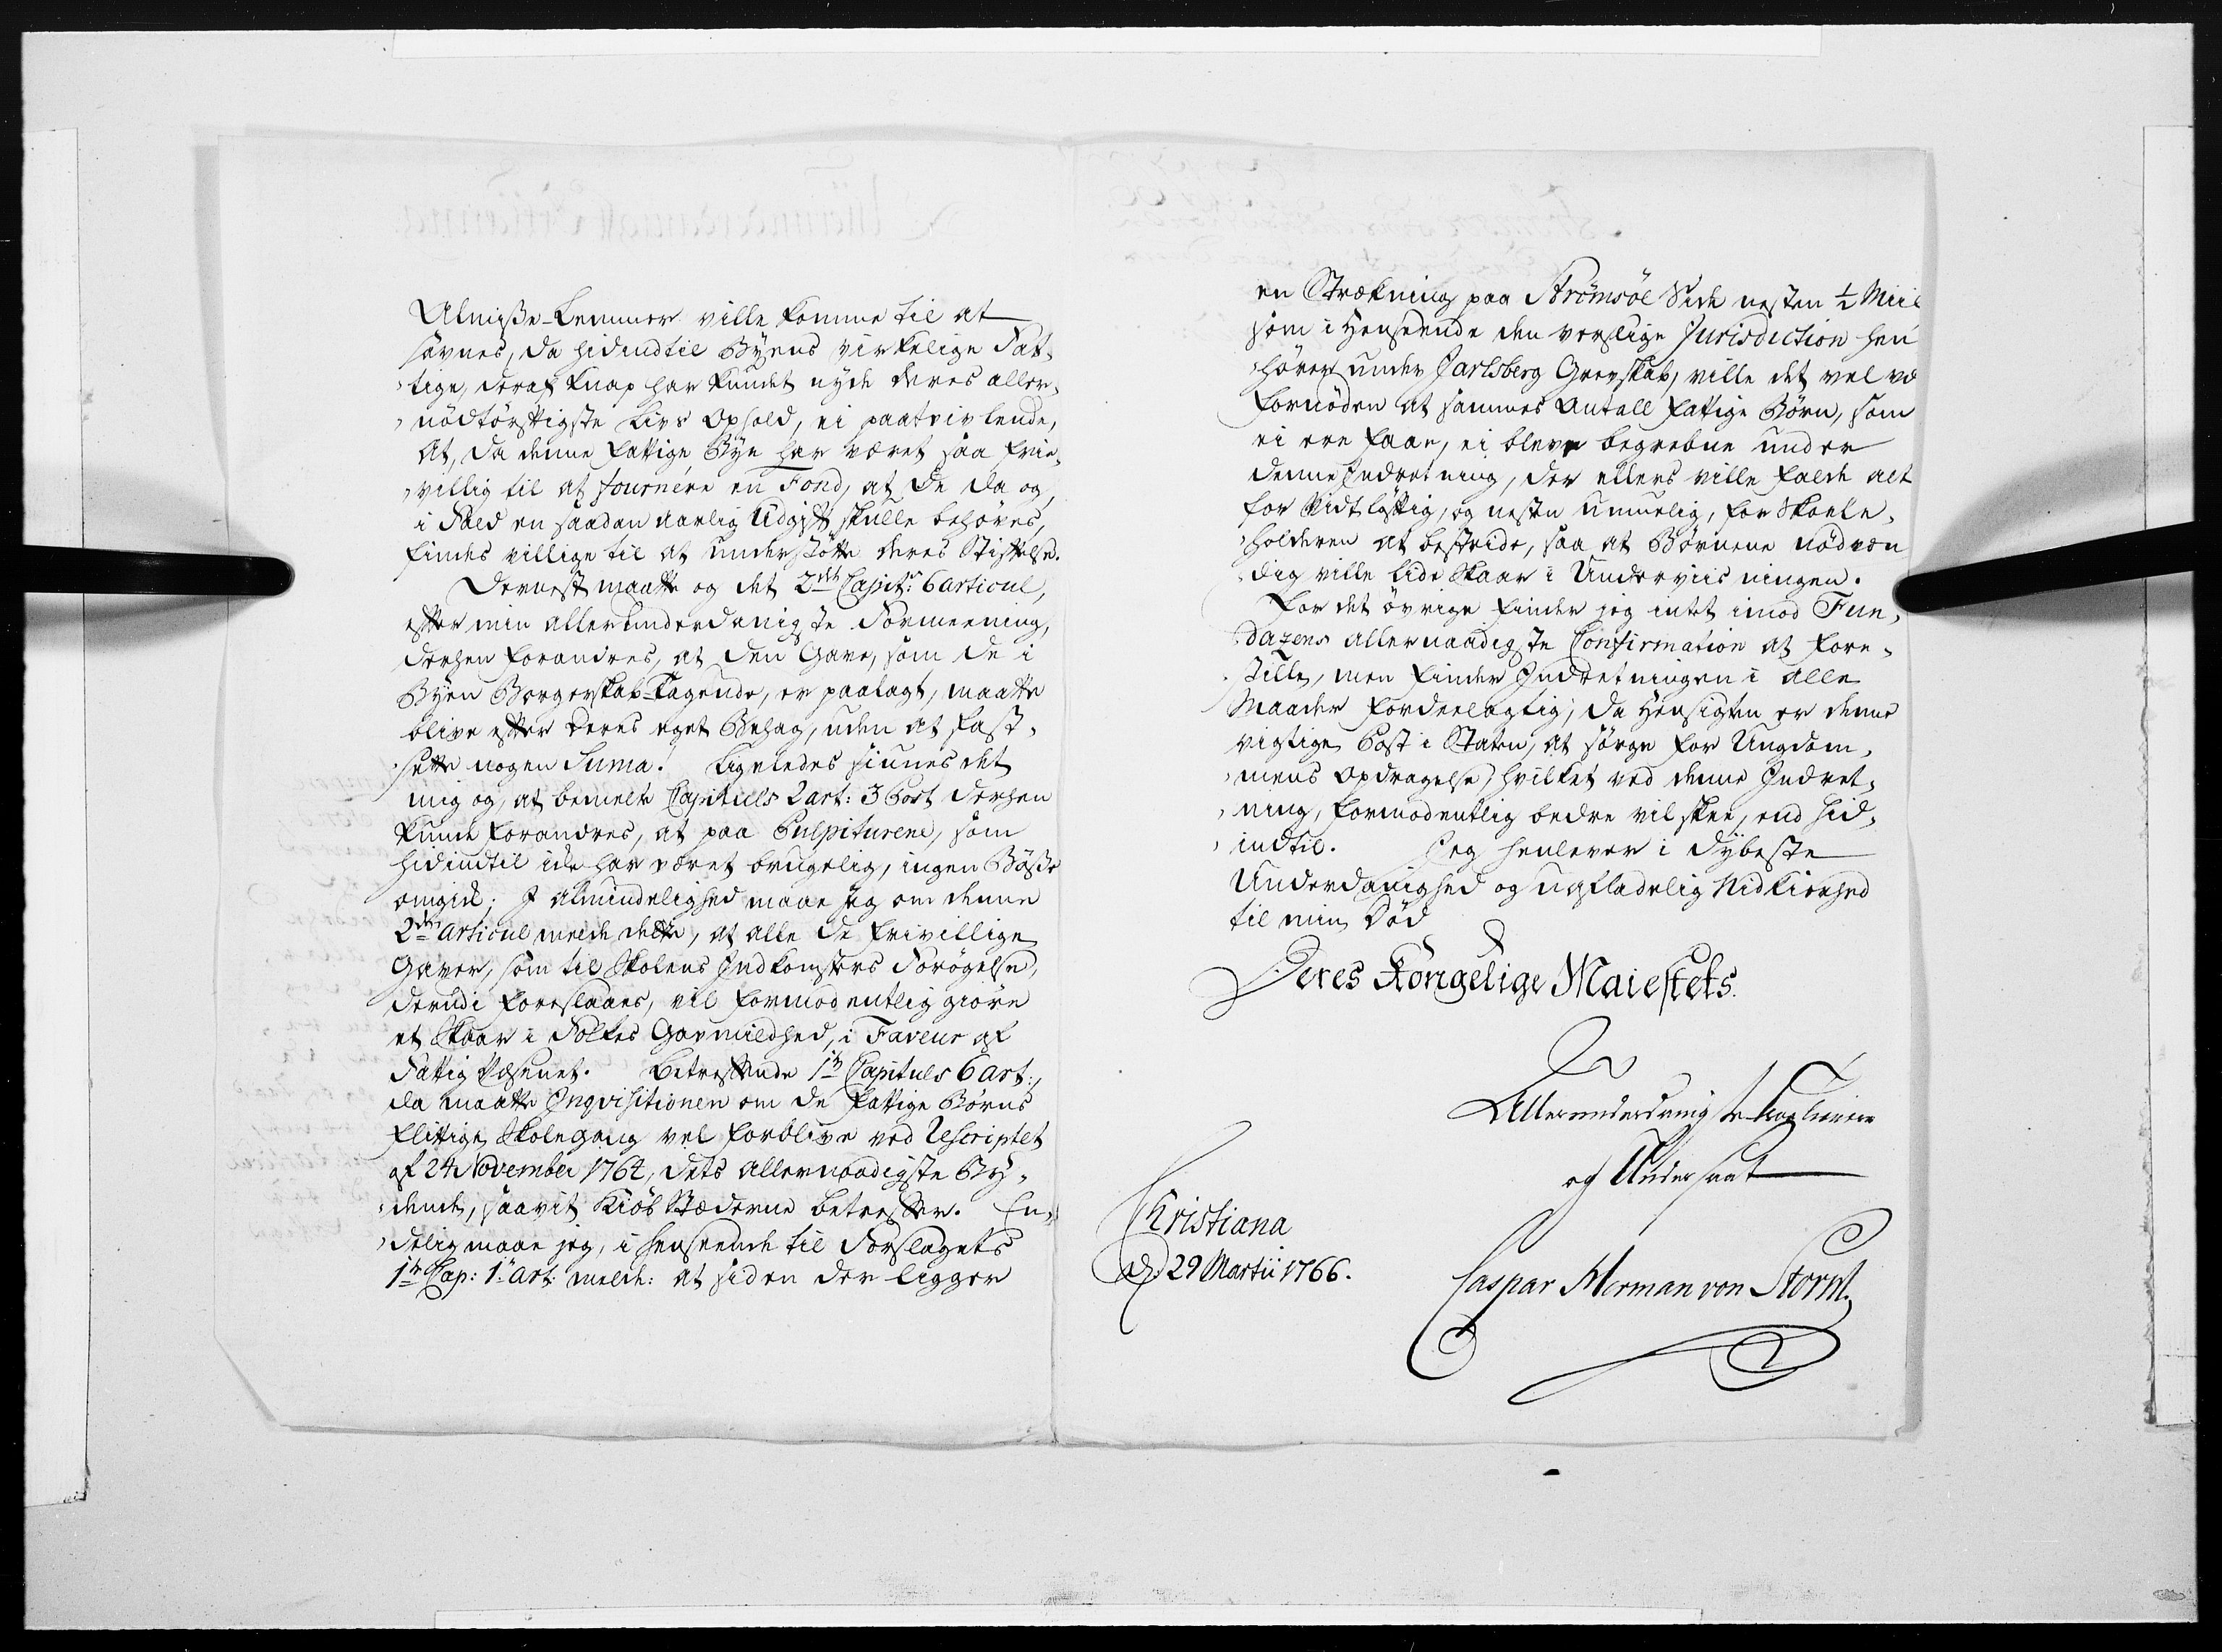 Almisse-Lemmer ville komme til at
savnes, da hidindtil Byens virkelige Fat-
tige, deraf knap har kundet nyde deres aller-
nödtörftigste Livs Ophold, ei paatvivlende,
at, da denne fattige Bye har været saa frie-
villig til at fournere en Fond, at de da og,
i Fald en saadan aarlig Udgift skulle behöves,
findes villige til at understötte deres Stiftelse.
Dernest maatte og det 2det Capit: 6 articul,
efter min allerunderdanigste Formeening,
derhen forandres, at den Gave, som de i
Byen Borgerskab-tagende, er paalagt, maatte
blive efter deres eget Behag, uden at fast-
sette nogen Suma. Ligeledes siunes det
mig og, at bemelte Capituls 2 art: 3 Post derhen
kunde forandres, at paa Pulpiturene, som
hidindtil icke har været brugelig, ingen Bösse
omgik; I Almindelighed maae jeg om denne
2den Articul melde dette, at alle de frivillige
Gaver, som til Skolens Indkomsters Forögelse,
derudi foreslaaes, vil formodentlig giöre
et Skaar i Folkes Gavmildhed, i Faveur af
Fattig Væsenet. Betreffende 1ste Capituls 6 art:,
da maatte Inqvisitionen om de fattige Börns
flittige Skolegang vel forblive ved Rescriptet
af 24 November 1764, dets allernaadigste By-
dende, saavit Kiöb Stæderne betreffer. En-
delig maae jeg, i henseende til Forslagets
1ste Cap: 1 Art: melde: at siden der ligger
en Strækning paa Strömsöe Side nesten 1/2 Miil
som i Henseende den verslige Jurisdiction hen
hörer under Jarlsberg Grevskab, ville det vel være
fornöden at sammes Antall fattige Börn, som
ei ere faae, ei bleve begrebne under
denne Indretning, der ellers ville falde alt
for vidtlöftig, og nesten umuelig, for Skoele-
holderen at bestride, saa at Börnene nödven
dig ville lide Skaar i Underviisningen.
For det övrige finder jeg intet imod Fun-
dazens allernaadigste Confirmation at fore-
stille, men finder Indretningen i alle
Maader fordeelagtig, da Hensigten er denne
vigtige Post i Staten, at sörge for Ungdom-
mens Opdragelse, hvilket ved denne Indret-
ning, formodentlig bedre vil skee, end hid-
indtil. Jeg henlever i dybeste
Underdanighed og uafladelig Nidkierhed
til min Död
Deres Kongelige Maiestets.
Allerunderdanigste
og Undersaat
Christiana
d. 29 Martii 1766.
Caspar Herman von Storm.